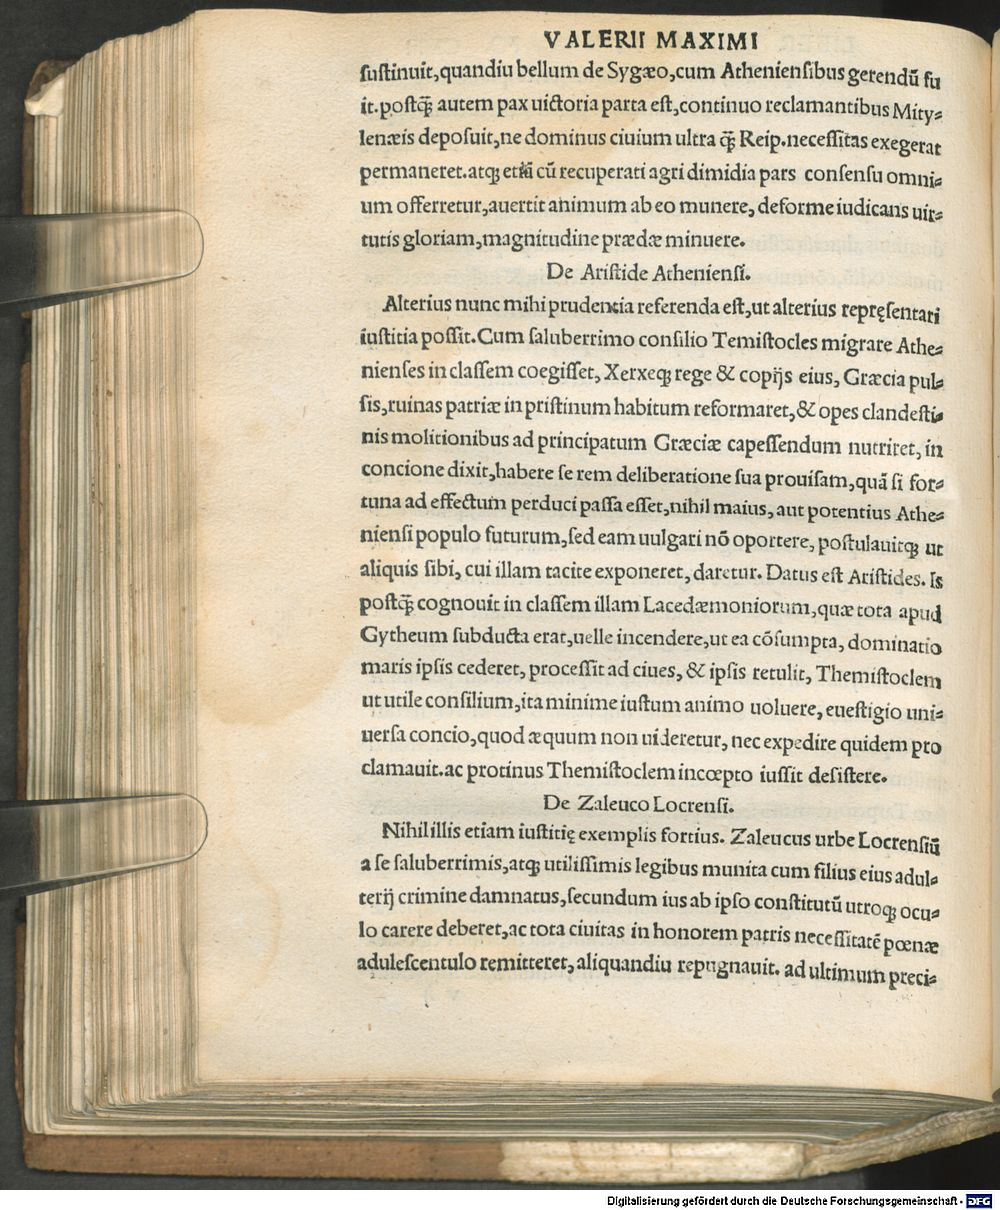 VALERII MAXIMI
ſuſtinuit,quandiu bellum de Sygæo,cum Athenienſibus gerendū fu
it.poſtq̄ autem pax uictoria parta eſt,continuo reclamantibus Mity-
lenæis depoſuit,ne dominus ciuium ultra q̄ Reip.neceſſitas exegerat
permaneret.atqꝫ etiā cū recuperati agri dimidia pars conſenſu omni-
um offerretur,auertit animum ab eo munere, deforme iudicans uir-
tutis gloriam,magnitudine prædæ minuere.
De Ariſtide Athenienſi.
Alterius nunc mihi prudentia referenda eſt,ut alterius repręſentari
iuſtitia poſſit.Cum ſaluberrimo conſilio Temiſtocles migrare Athe-
nienſes in claſſem coegiſſet, Xerxeqꝫ rege & copijs eius, Græcia pul-
ſis,ruinas patriæ in priſtinum habitum reformaret,& opes clandeſti-
nis molitionibus ad principatum Græciæ capeſſendum nutriret, in
concione dixit,habere ſe rem deliberatione ſua prouiſam,quā ſi for-
tuna ad effectum perduci paſſa eſſet,nihil maius, aut potentius Athe-
nienſi populo futurum,ſed eam uulgari nō oportere, poſtulauitqꝫ ut
aliquis ſibi, cui illam tacite exponeret, daretur. Datus eſt Ariſtides. Is
poſtq̄ cognouit in claſſem illam Lacedæmoniorum,quæ tota apud
Gytheum ſubducta erat,uelle incendere,ut ea cōſumpta, dominatio
maris ipſis cederet, proceſſit ad ciues, & ipſis retulit, Themiſtoclem
ut utile conſilium,ita minime iuſtum animo uoluere, eueſtigio uni-
uerſa concio,quod æquum non uideretur, nec expedire quidem pro
clamauit.ac protinus Themiſtoclem incœpto iuſſit deſiſtere.
De Zaleuco Locrenſi.
Nihil illis etiam iuſtitię exemplis fortius. Zaleucus urbe Locrenſiū
a ſe ſaluberrimis,atqꝫ utiliſſimis legibus munita cum filius eius adul-
terij crimine damnatus,ſecundum ius ab ipſo conſtitutū utroqꝫ ocu-
lo carere deberet,ac tota ciuitas in honorem patris neceſſitatē pœnæ
aduleſcentulo remitteret,aliquandiu repugnauit. ad ultimum preci-
Digitalisierung gefördert durch die Deutsche Forschungsgemeinschaft - DFG